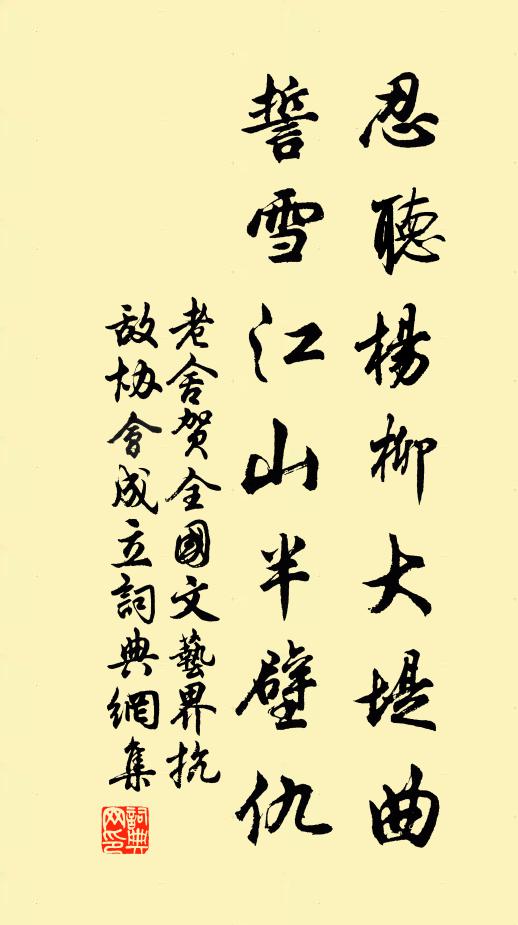 忍聽楊柳大堤曲
誓雪江山半壁仇
老舍贺全國文藝界抗
敌协會成立詞典網集
詞典
网印